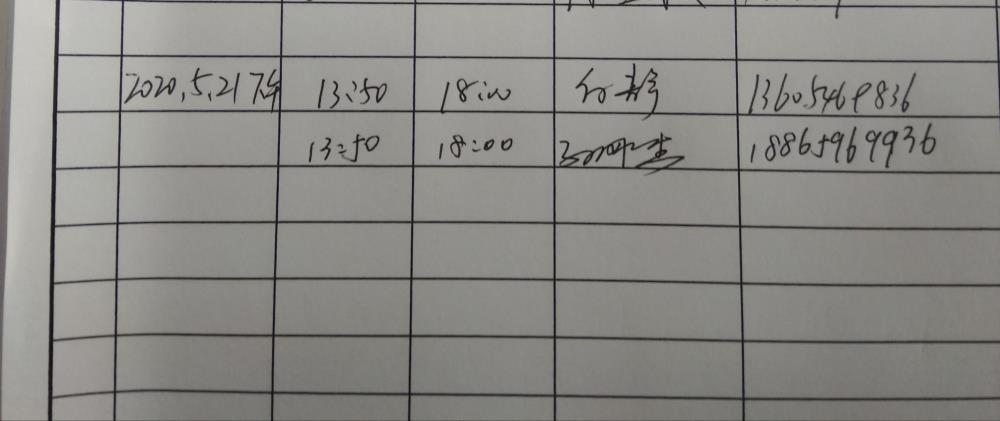 2020.5.21下午 13:50 18:00 13605469836
13:50 18:00 18865969936